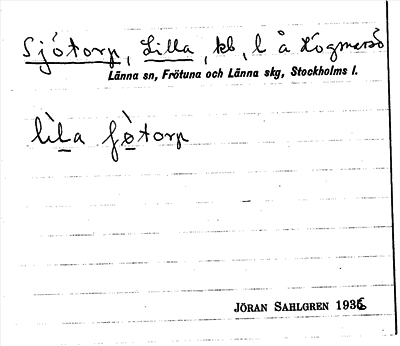 Sjötorp, Lilla, kb, l å Högmarsö
Länna sn, Frötuna och Länna skg, Stockholms l.
lìla fòtorp
JÖRAN SAHLGREN 1936